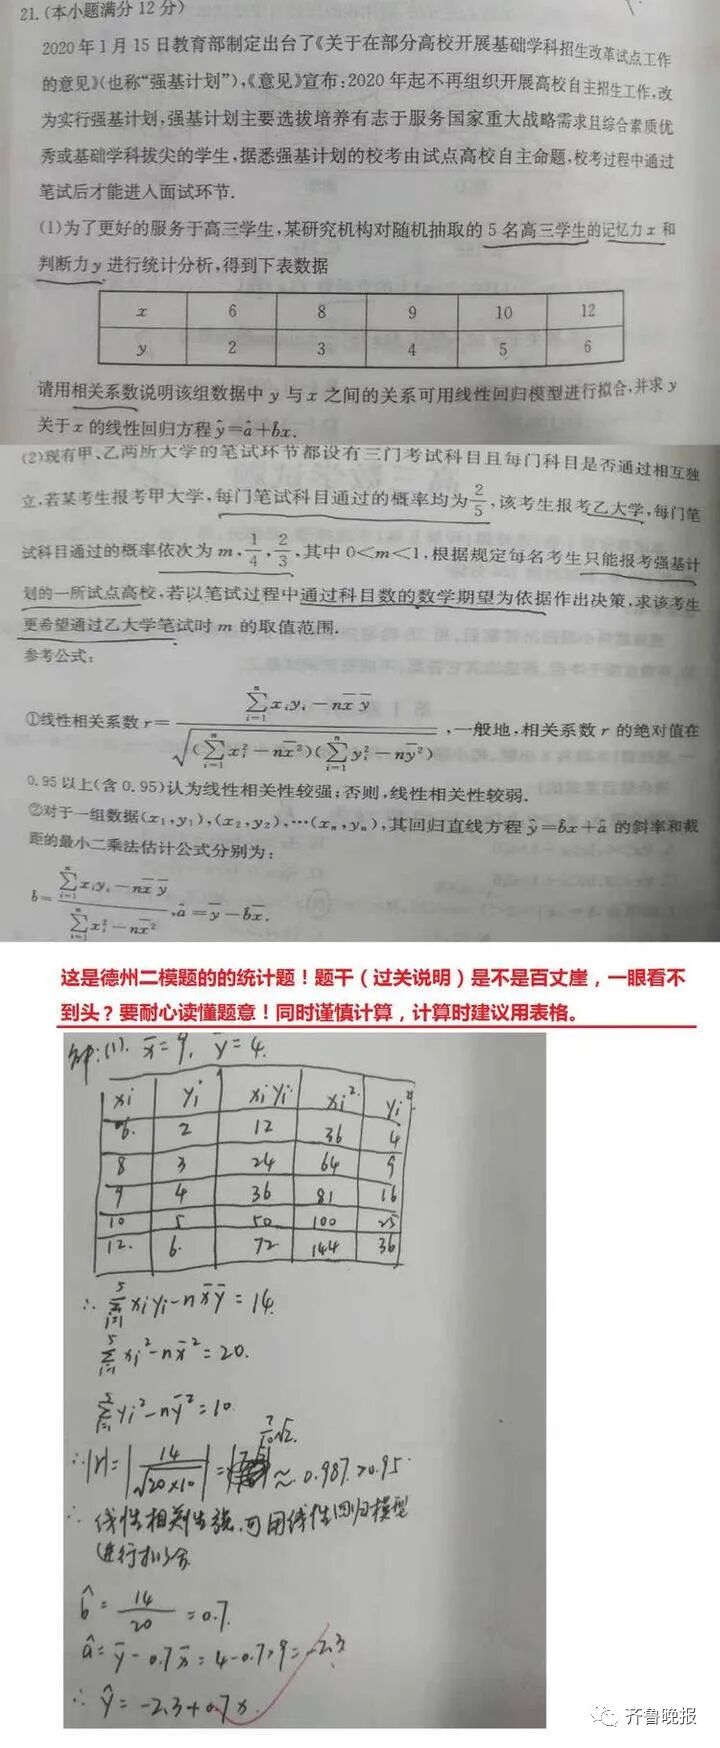 21.(本小题满分12分)
2020年1月15日教育部制定出台了《关于在部分高校开展基础学科招生改革试点工作
的意见》(也称“强基计划”),《意见》宣布:2020年起不再组织开展高校自主招生工作,改
为实行强基计划,强基计划主要选拔培养有志于服务国家重大战略需求且综合素质优
秀或基础学科拔尖的学生,据悉强基计划的校考由试点高校自主命题,校考过程中通过
笔试后才能进入面试环节.
(1)为了更好的服务于高三学生,某研究机构对随机抽取的5名高三学生的记忆力x和
判断力y进行统计分析,得到下表数据
x 6 8 9 10 12
y 2 3 4 5 6
请用相关系数说明该组数据中y与x之间的关系可用线性回归模型进行拟合,并求y
关于x的线性回归方程ŷ=â+b̂x.
(2)现有甲、乙两所大学的笔试环节都设有三门考试科目且每门科目是否通过相互独
立,若某考生报考甲大学,每门笔试科目通过的概率均为2/5,该考生报考乙大学,每门笔
试科目通过的概率依次为m,1/4,2/3,其中0<m<1,根据规定每名考生只能报考强基计
划的一所试点高校,若以笔试过程中通过科目数的数学期望为依据作出决策,求该考生
更希望通过乙大学笔试时m的取值范围.
参考公式:
①线性相关系数r=(∑_{i=1}^{n}x_iy_i-nx̄ȳ)/√((∑_{i=1}^{n}x_i²-nx̄²)(∑_{i=1}^{n}y_i²-nȳ²)),一般地,相关系数r的绝对值在
0.95以上(含0.95)认为线性相关性较强;否则,线性相关性较弱.
②对于一组数据(x₁,y₁),(x₂,y₂),…(xₙ,yₙ),其回归直线方程ŷ=b̂x+â的斜率和截
距的最小二乘法估计公式分别为:
b̂=(∑_{i=1}^{n}x_iy_i-nx̄ȳ)/(∑_{i=1}^{n}x_i²-nx̄²),â=ȳ-b̂x̄.
这是德州二模题的的统计题!题干(过关说明)是不是百丈崖,一眼看不
到头?要耐心读懂题意!同时谨慎计算,计算时建议用表格。
解:(1). x̄=9, ȳ=4.
xi yi xiyi xi² yi²
6 2 12 36 4
8 3 24 64 9
9 4 36 81 16
10 5 50 100 25
12. 6. 72 144 36
∴ ∑_{i=1}^{5}xiyi-nx̄ȳ=14.
∑_{i=1}^{5}xi²-nx̄²=20.
∑_{i=1}^{5}yi²-nȳ²=10.
∴|r|=|14/√(20×10)|=7/10√2≈0.987>0.95.
∴ 线性相关性强,可用线性回归模型
进行拟合
b̂=14/20=0.7.
â=ȳ-0.7x̄=4-0.7×9=-2.3
∴ ŷ=-2.3+0.7x.
齐鲁晚报